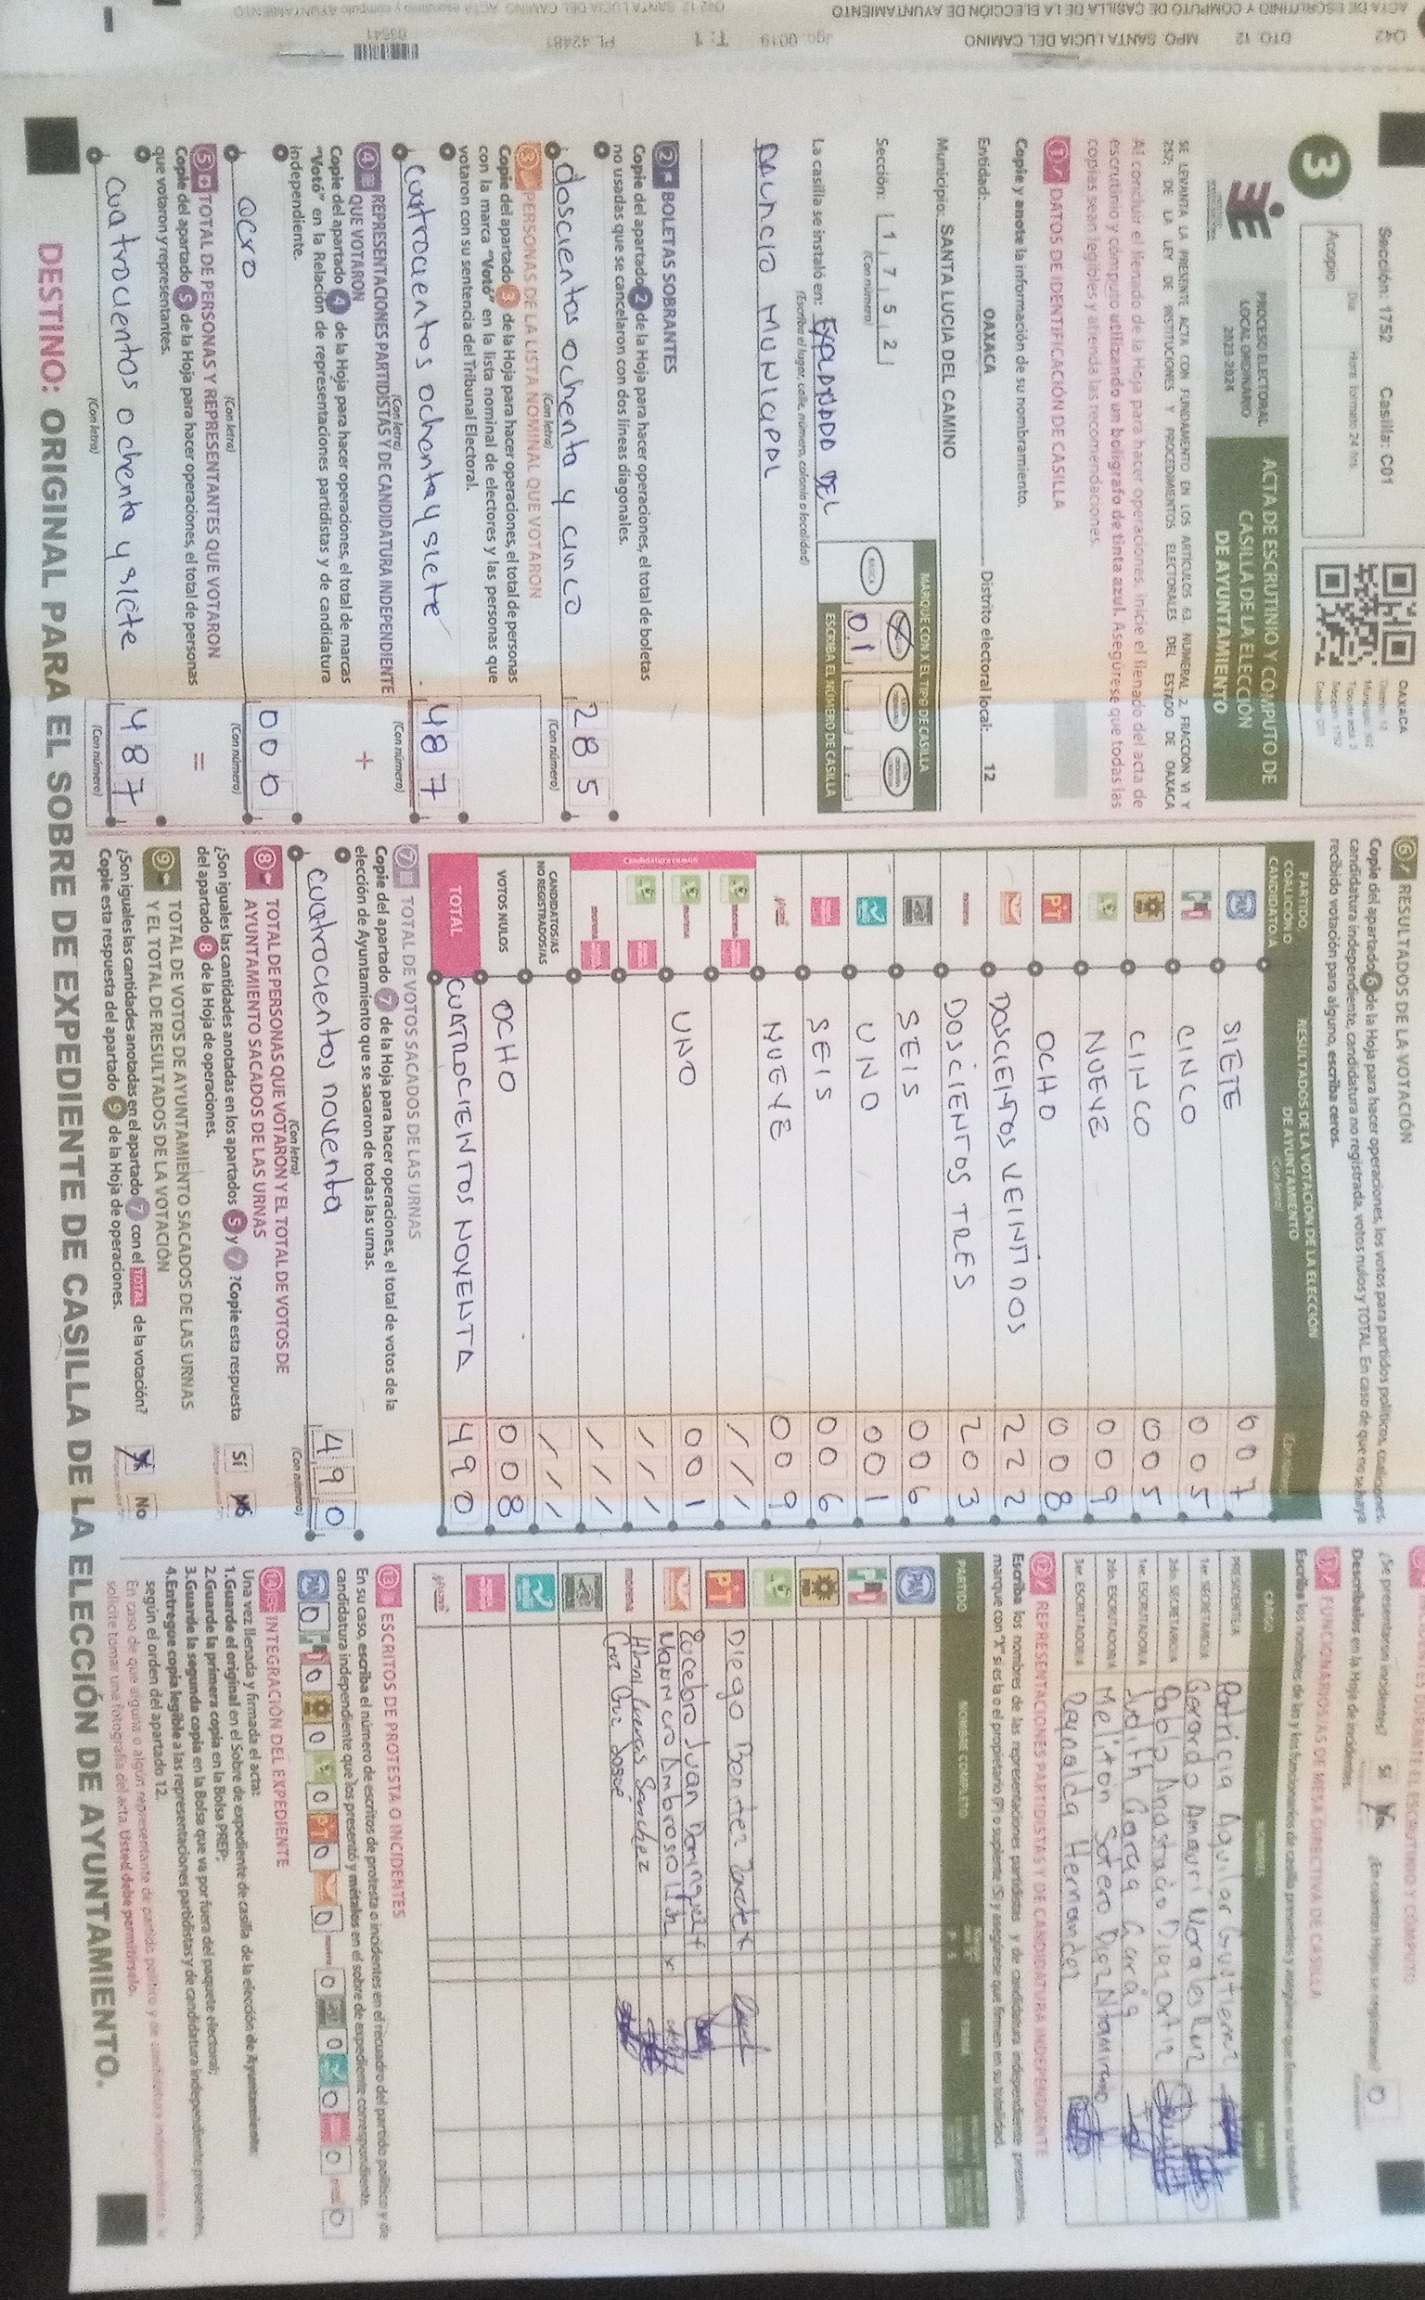 ACTA DE ESCRUTINIO Y CÓMPUTO DE CASILLA DE LA ELECCIÓN DE AYUNTAMIENTO
042 DTO 12 MPO SANTA LUCIA DEL CAMINO
T: 1
PL 42481
03541
Sección: 1752 Casilla: C01
OAXACA
3
Acopio
Día
Hora: formato 24 hrs.
PROCESO ELECTORAL
LOCAL ORDINARIO
2023-2024
ACTA DE ESCRUTINIO Y CÓMPUTO DE
CASILLA DE LA ELECCIÓN
DE AYUNTAMIENTO
SE LEVANTA LA PRESENTE ACTA CON FUNDAMENTO EN LOS ARTÍCULOS 63, NUMERAL 2, FRACCIÓN VI Y
252; DE LA LEY DE INSTITUCIONES Y PROCEDIMIENTOS ELECTORALES DEL ESTADO DE OAXACA
Al concluir el llenado de la Hoja para hacer operaciones, inicie el llenado del acta de
escrutinio y cómputo utilizando un bolígrafo de tinta azul. Asegúrese que todas las
copias sean legibles y atienda las recomendaciones.
1 DATOS DE IDENTIFICACIÓN DE CASILLA
Copie y anote la información de su nombramiento.
Entidad: OAXACA Distrito electoral local: 12
Municipio: SANTA LUCIA DEL CAMINO
Sección: 1 7 5 2
(Con número)
MARQUE CON X EL TIPO DE CASILLA
BÁSICA
ESCRIBA EL NÚMERO DE CASILLA
0 1
La casilla se instaló en: EXPLANADA DEL
(Escriba el lugar, calle, número, colonia o localidad)
MUNICIPAL
2 BOLETAS SOBRANTES
Copie del apartado 2 de la Hoja para hacer operaciones, el total de boletas
no usadas que se cancelaron con dos líneas diagonales.
doscientos ochenta y cinco 2 8 5
(Con letra) (Con número)
3 PERSONAS DE LA LISTA NOMINAL QUE VOTARON
Copie del apartado 3 de la Hoja para hacer operaciones, el total de personas
con la marca “Votó” en la lista nominal de electores y las personas que
votaron con su sentencia del Tribunal Electoral.
cuatrocientos ochenta y siete 4 8 7
(Con letra) (Con número)
4 REPRESENTACIONES PARTIDISTAS Y DE CANDIDATURA INDEPENDIENTE
QUE VOTARON +
Copie del apartado 4 de la Hoja para hacer operaciones, el total de marcas
“Votó” en la Relación de representaciones partidistas y de candidatura
independiente.
cero 0 0 0
(Con letra) (Con número)
5 TOTAL DE PERSONAS Y REPRESENTANTES QUE VOTARON =
Copie del apartado 5 de la Hoja para hacer operaciones, el total de personas
que votaron y representantes.
cuatrocientos ochenta y siete 4 8 7
(Con letra) (Con número)
6 RESULTADOS DE LA VOTACIÓN
Copie del apartado 6 de la Hoja para hacer operaciones, los votos para partidos políticos, coaliciones,
candidatura independiente, candidatura no registrada, votos nulos y TOTAL. En caso de que no se haya
recibido votación para alguno, escriba ceros.
PARTIDO, COALICIÓN O CANDIDATO/A
RESULTADOS DE LA VOTACIÓN DE LA ELECCIÓN
DE AYUNTAMIENTO
(Con letra)
PAN SIETE 0 0 7
PRI CINCO 0 0 5
PRD CINCO 0 0 5
NUEVE 0 0 9
PT OCHO 0 0 8
DOSCIENTOS VEINTIDOS 2 2 2
morena DOSCIENTOS TRES 2 0 3
SEIS 0 0 6
UNO 0 0 1
SEIS 0 0 6
NUEVE 0 0 9
Candidatura común
morena / / /
morena UNO 0 0 1
/ / /
morena / / /
CANDIDATOS/AS
NO REGISTRADOS/AS / / /
VOTOS NULOS OCHO 0 0 8
TOTAL CUATROCIENTOS NOVENTA 4 9 0
7 TOTAL DE VOTOS SACADOS DE LAS URNAS
Copie del apartado 7 de la Hoja para hacer operaciones, el total de votos de la
elección de Ayuntamiento que se sacaron de todas las urnas.
cuatrocientos noventa 4 9 0
(Con letra) (Con número)
8 TOTAL DE PERSONAS QUE VOTARON Y EL TOTAL DE VOTOS DE
AYUNTAMIENTO SACADOS DE LAS URNAS
¿Son iguales las cantidades anotadas en los apartados 5 y 7 ? Copie esta respuesta
del apartado 8 de la Hoja de operaciones.
Sí No
9 TOTAL DE VOTOS DE AYUNTAMIENTO SACADOS DE LAS URNAS
Y EL TOTAL DE RESULTADOS DE LA VOTACIÓN
¿Son iguales las cantidades anotadas en el apartado 7 con el TOTAL de la votación?
Copie esta respuesta del apartado 9 de la Hoja de operaciones.
Sí No
¿Se presentaron incidentes? Sí No
Descríbalos en la Hoja de incidentes.
11 FUNCIONARIOS/AS DE MESA DIRECTIVA DE CASILLA
CARGO NOMBRES FIRMAS
PRESIDENTE/A Patricia Aguilar Gutierrez
1er. SECRETARIO/A Gerardo Amauri Morales Ruiz
2do. SECRETARIO/A Pablo Anastacio Diaz Ortiz
1er. ESCRUTADOR/A Judith García García
2do. ESCRUTADOR/A Meliton Sotero Diaz Altamirano
3er. ESCRUTADOR/A Reynalda Hernandez
12 REPRESENTACIONES PARTIDISTAS Y DE CANDIDATURA INDEPENDIENTE
Escriba los nombres de las representaciones partidistas y de candidatura independiente presentes,
marque con “X” si es la o el propietario (P) o suplente (S) y asegúrese que firmen en su totalidad.
PARTIDO NOMBRE COMPLETO FIRMA
PAN
PRD
PT Diego
Juan Dominguez
morena Sánchez
Cruz Cruz Josue
13 ESCRITOS DE PROTESTA O INCIDENTES
En su caso, escriba el número de escritos de protesta o incidentes en el recuadro del partido político y de
candidatura independiente que los presentó y métalos en el sobre de expediente correspondiente.
PAN 0 PRI 0 PRD 0 0 PT 0 0 morena 0 0 0 0 0
14 INTEGRACIÓN DEL EXPEDIENTE
Una vez llenada y firmada el acta:
1.Guarde el original en el Sobre de expediente de casilla de la elección de Ayuntamiento;
2.Guarde la primera copia en la Bolsa PREP;
3.Guarde la segunda copia en la Bolsa que va por fuera del paquete electoral;
4.Entregue copia legible a las representaciones partidistas y de candidatura independiente presentes,
según el orden del apartado 12.
En caso de que alguna o algún representante de partido político y de candidatura independiente
solicite tomar una fotografía del acta. Usted debe permitírselo.
DESTINO: ORIGINAL PARA EL SOBRE DE EXPEDIENTE DE CASILLA DE LA ELECCIÓN DE AYUNTAMIENTO.